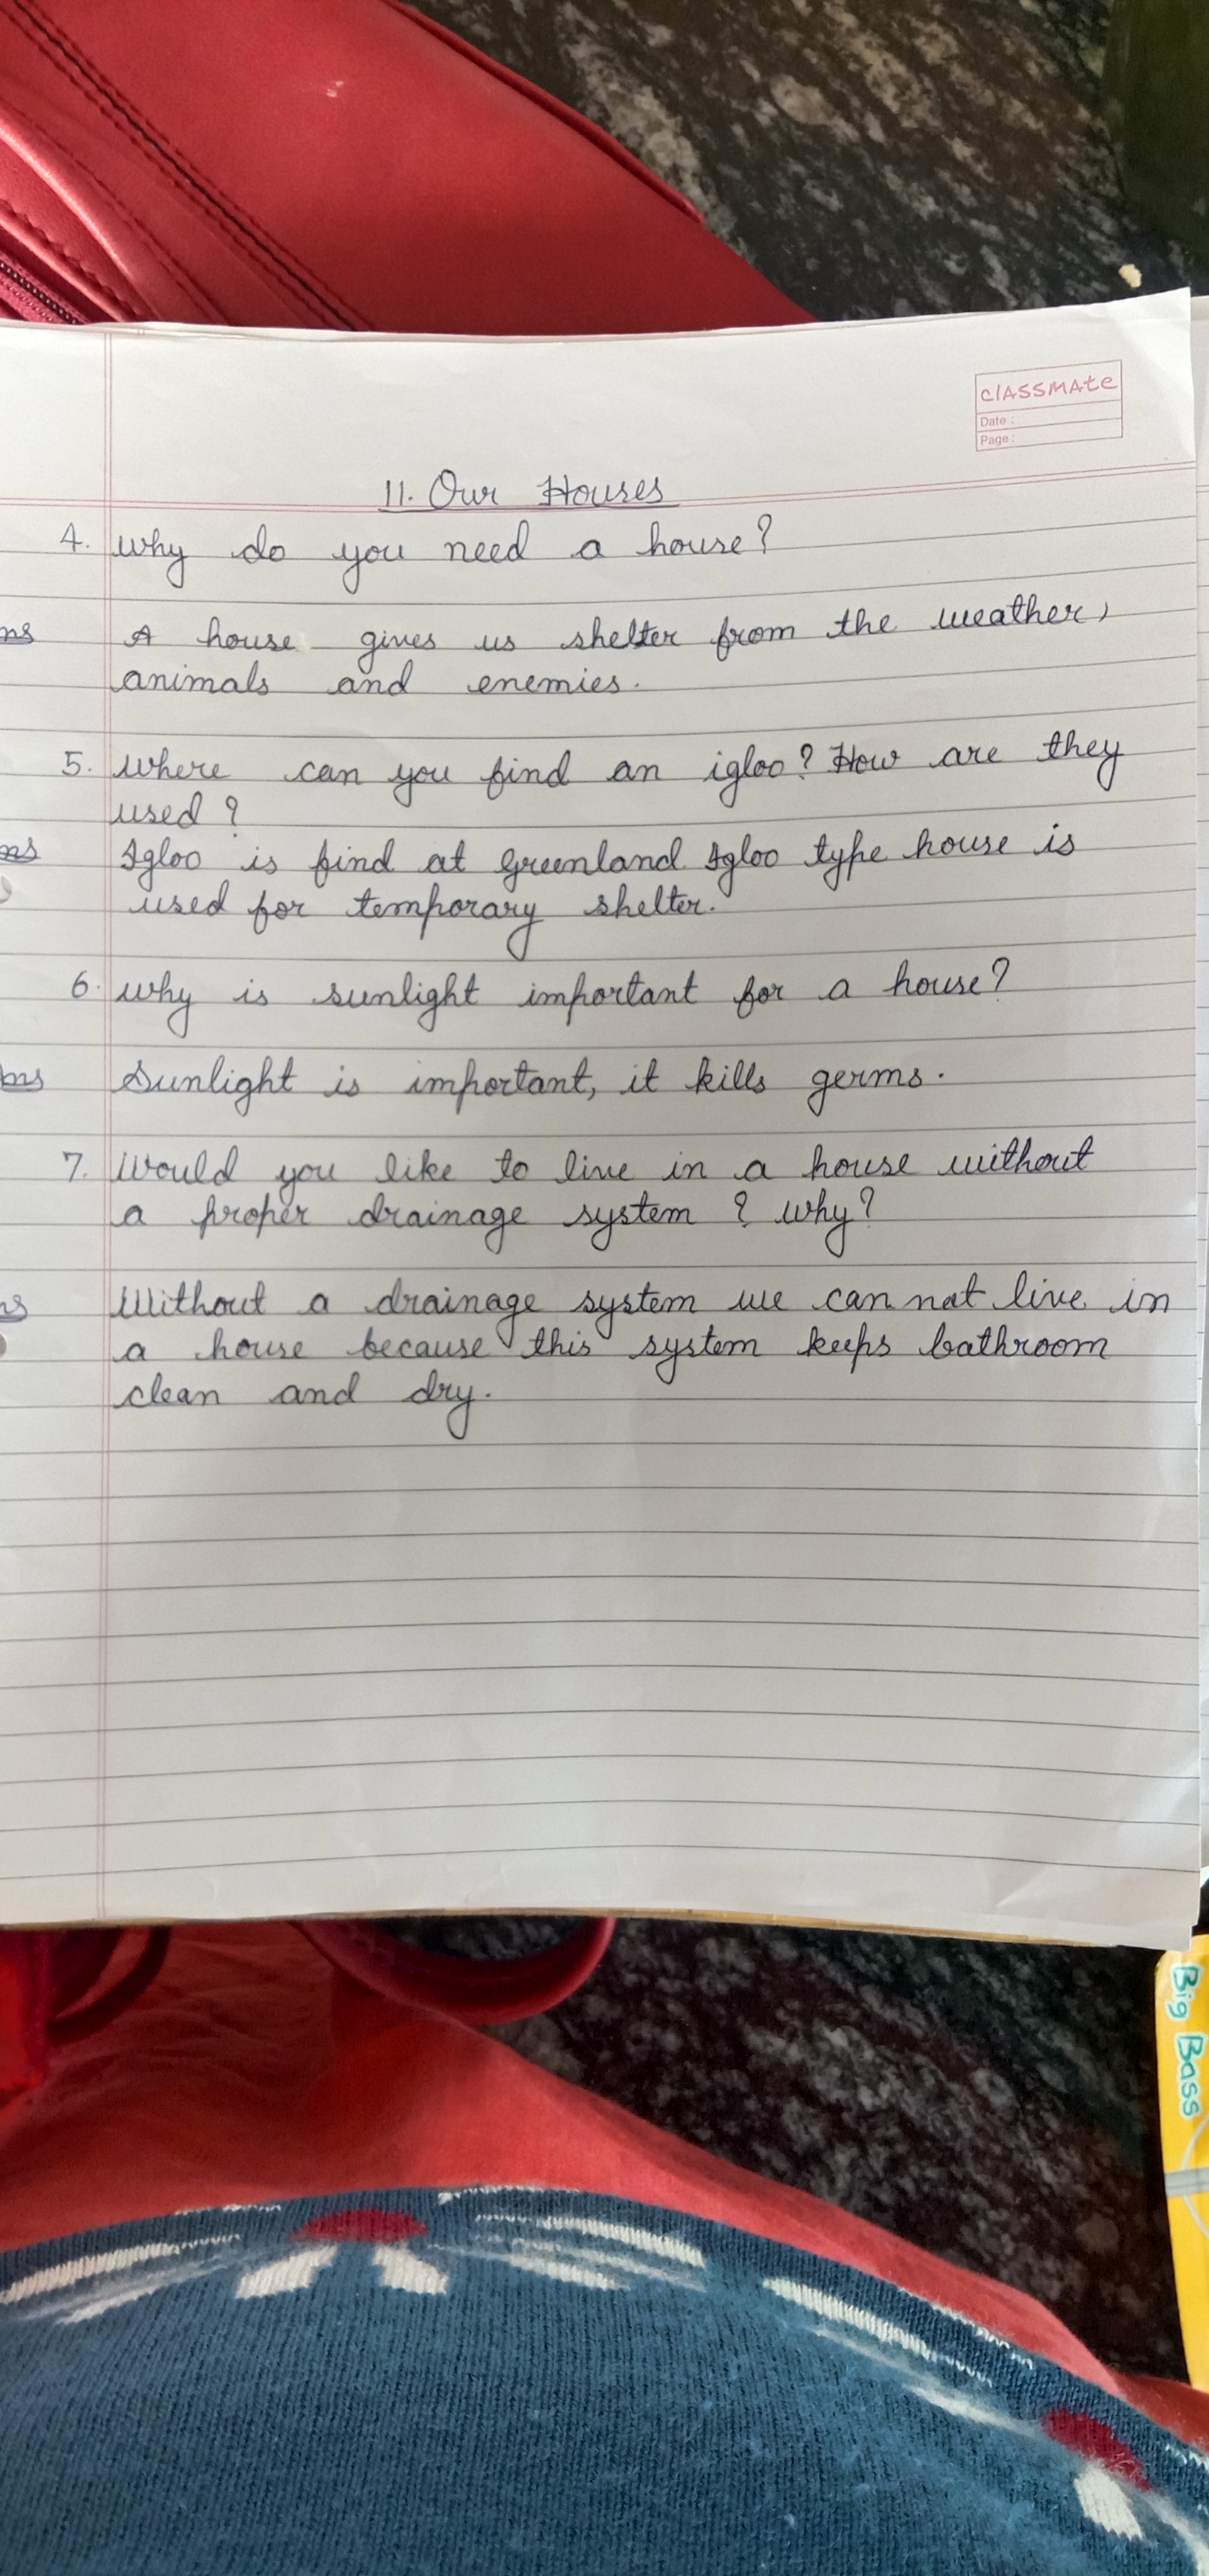 classmate
Date :
Page :
11. Our Houses
4. Why do you need a house?
ns A house gives us shelter from the weather,
animals and enemies.
5. Where can you find an igloo? How are they
used ?
ns Igloo is find at Greenland Igloo type house is
used for temporary shelter.
6. Why is sunlight important for a house?
ns Sunlight is important, it kills germs.
7. Would you like to live in a house without
a proper drainage system ? Why?
ns Without a drainage system we can not live in
a house because this system keeps bathroom
clean and dry.
Big Bass